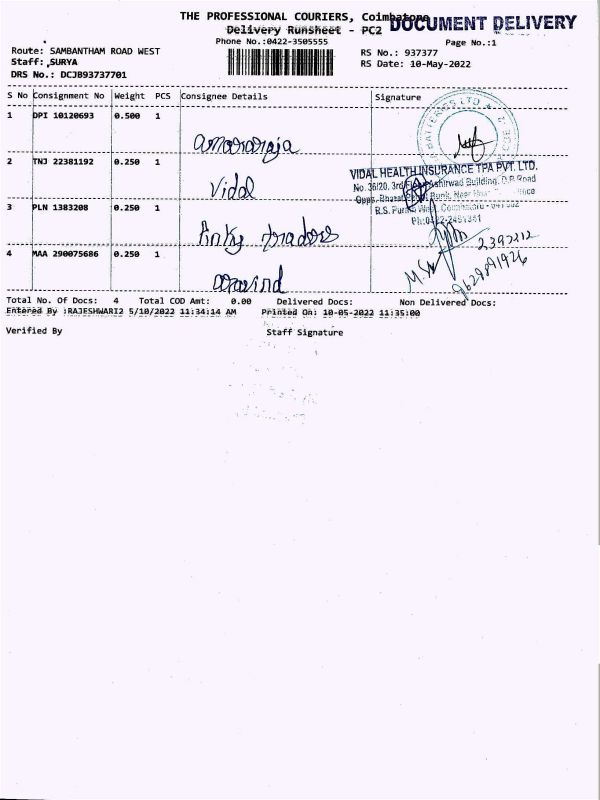 THE PROFESSIONAL COURIERS, Coimbatore
DOCUMENT DELIVERY
Delivery Runsheet - PC2
Phone No.:0422-3505555
Page No.:1
Route: SAMBANTHAM ROAD WEST
RS No.: 937377
Staff: SURYA
RS Date: 10-May-2022
DRS No.: DCJB93737701
S No Consignment No Weight PCS Consignee Details Signature
1 DPI 10120693 0.500 1
amararaja
BATTERIES LTD
2 TNJ 22381192 0.250 1
Vidal
VIDAL HEALTH INSURANCE TPA PVT. LTD.
No. 36/20, 3rd Floor, Ashirwad Building, D.B.Road
Bank, Near
R.S. Puram West, Coimbatore - 641 002
3 PLN 1383208 0.250 1
4 MAA 290075686 0.250 1
Total No. Of Docs: 4 Total COD Amt: 0.00 Delivered Docs: Non Delivered Docs:
Entered By :RAJESHWARI2 5/10/2022 11:34:14 AM Printed On: 10-05-2022 11:35:00
Verified By Staff Signature